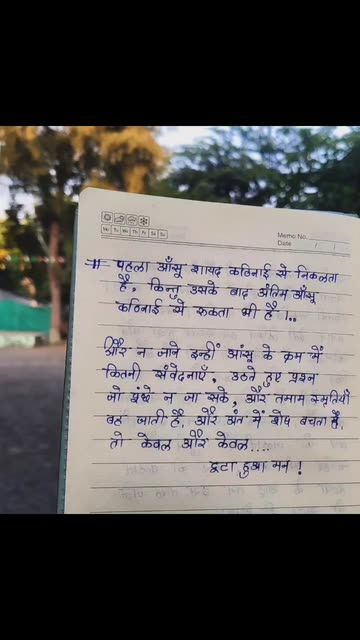 Mo Tu We Th Fr Sa Su
Memo No.
Date / /
# पहला आँसू शायद कठिनाई से निकलता
है, किन्तु उसके बाद अंतिम आँसू
कठिनाई से रुकता भी है ।..
और न जाने इन्हीं आंसू के क्रम में
कितनी संवेदनाएँ, उठते हुए प्रश्न
जो पूंछे न जा सके, और तमाम स्मृतियाँ
बह जाती है, और अंत में शेष बचता है,
तो केवल और केवल....
टूटा हुआ मन !